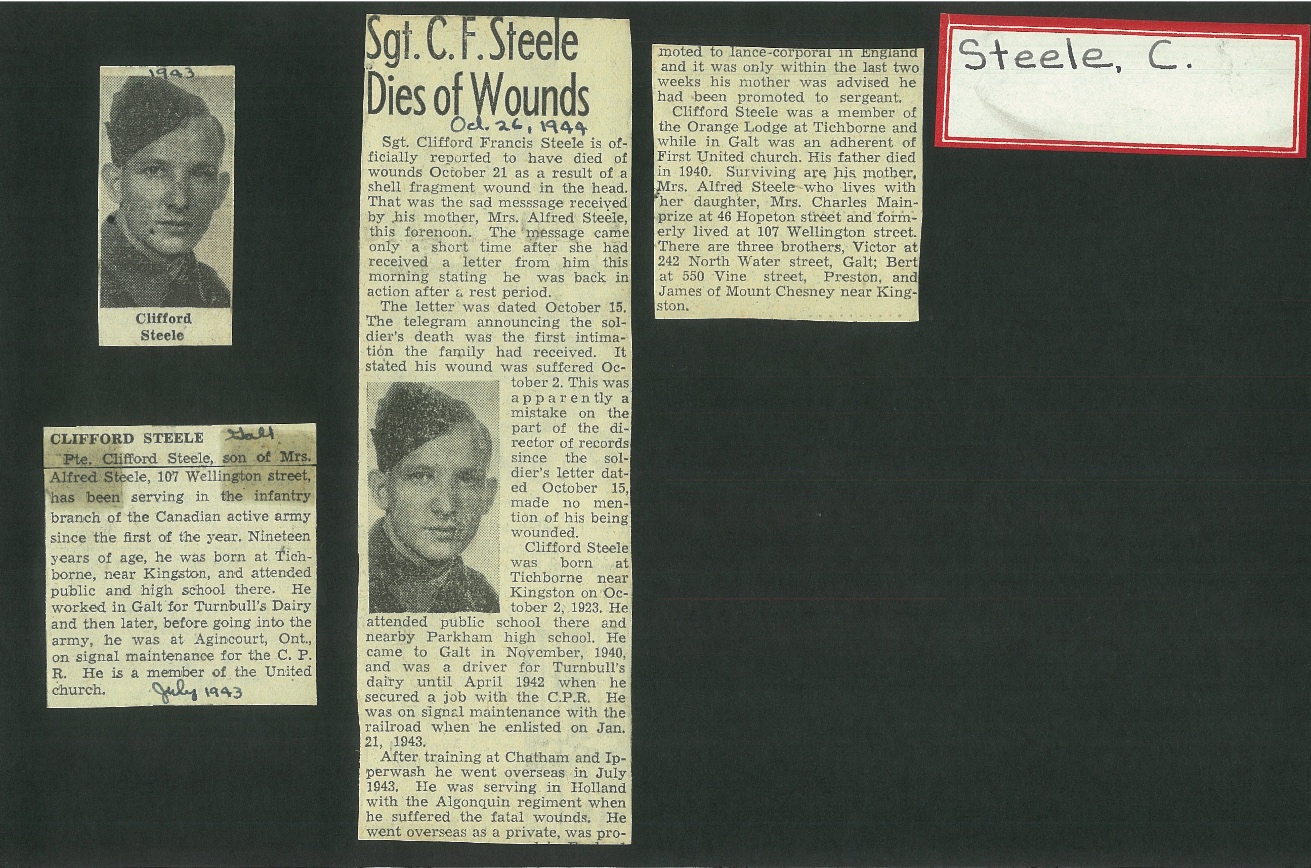 1943
Clifford
Steele
CLIFFORD STEELE Galt
Pte. Clifford Steele, son of Mrs.
Alfred Steele, 107 Wellington street,
has been serving in the infantry
branch of the Canadian active army
since the first of the year. Nineteen
years of age, he was born at Tich-
borne, near Kingston, and attended
public and high school there. He
worked in Galt for Turnbull's Dairy
and then later, before going into the
army, he was at Agincourt, Ont.,
on signal maintenance for the C. P.
R. He is a member of the United
church. July 1943
Sgt. C. F. Steele
Dies of Wounds
Oct. 26, 1944
Sgt. Clifford Francis Steele is of-
ficially reported to have died of
wounds October 21 as a result of a
shell fragment wound in the head.
That was the sad messsage received
by his mother, Mrs. Alfred Steele,
this forenoon. The message came
only a short time after she had
received a letter from him this
morning stating he was back in
action after a rest period.
The letter was dated October 15.
The telegram announcing the sol-
dier's death was the first intima-
tion the family had received. It
stated his wound was suffered Oc-
tober 2. This was
apparently a
mistake on the
part of the di-
rector of records
since the sol-
dier's letter dat-
ed October 15,
made no men-
tion of his being
wounded.
Clifford Steele
was born at
Tichborne near
Kingston on Oc-
tober 2, 1923. He
attended public school there and
nearby Parkham high school. He
came to Galt in November, 1940,
and was a driver for Turnbull's
dairy until April 1942 when he
secured a job with the C.P.R. He
was on signal maintenance with the
railroad when he enlisted on Jan.
21, 1943.
After training at Chatham and Ip-
perwash he went overseas in July
1943. He was serving in Holland
with the Algonquin regiment when
he suffered the fatal wounds. He
went overseas as a private, was pro-
moted to lance-corporal in England
and it was only within the last two
weeks his mother was advised he
had been promoted to sergeant.
Clifford Steele was a member of
the Orange Lodge at Tichborne and
while in Galt was an adherent of
First United church. His father died
in 1940. Surviving are his mother,
Mrs. Alfred Steele who lives with
her daughter, Mrs. Charles Main-
prize at 46 Hopeton street and form-
erly lived at 107 Wellington street.
There are three brothers, Victor at
242 North Water street, Galt; Bert
at 550 Vine street, Preston, and
James of Mount Chesney near King-
ston.
Steele, C.